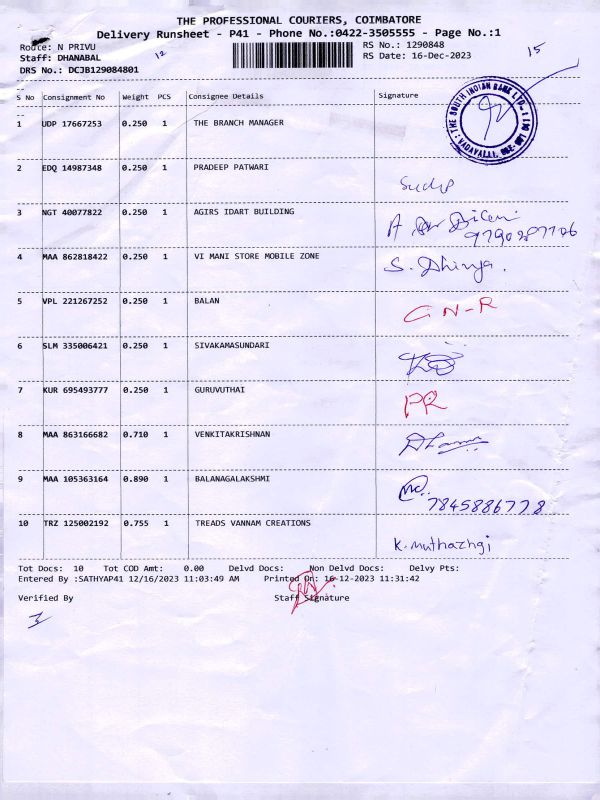 THE PROFESSIONAL COURIERS, COIMBATORE
Delivery Runsheet - P41 - Phone No.:0422-3505555 - Page No.:1
Route: N PRIVU RS No.: 1290848
Staff: DHANABAL 12 RS Date: 16-Dec-2023 15
DRS No.: DCJB129084801
S No Consignment No Weight PCS Consignee Details Signature
1 UDP 17667253 0.250 1 THE BRANCH MANAGER
THE SOUTH INDIAN BANK LTD.
VADAVALLI
2 EDQ 14987348 0.250 1 PRADEEP PATWARI
3 NGT 40077822 0.250 1 AGIRS IDART BUILDING
4 MAA 862818422 0.250 1 VI MANI STORE MOBILE ZONE
S. Dhivya.
5 VPL 221267252 0.250 1 BALAN
G N-R
6 SLM 335006421 0.250 1 SIVAKAMASUNDARI
7 KUR 695493777 0.250 1 GURUVUTHAI
PR
8 MAA 863166682 0.710 1 VENKITAKRISHNAN
9 MAA 105363164 0.890 1 BALANAGALAKSHMI
7845886778
10 TRZ 125002192 0.755 1 TREADS VANNAM CREATIONS
K. muthazhgi
Tot Docs: 10 Tot COD Amt: 0.00 Delvd Docs: Non Delvd Docs: Delvy Pts:
Entered By :SATHYAP41 12/16/2023 11:03:49 AM Printed On: 16-12-2023 11:31:42
Verified By Staff Signature